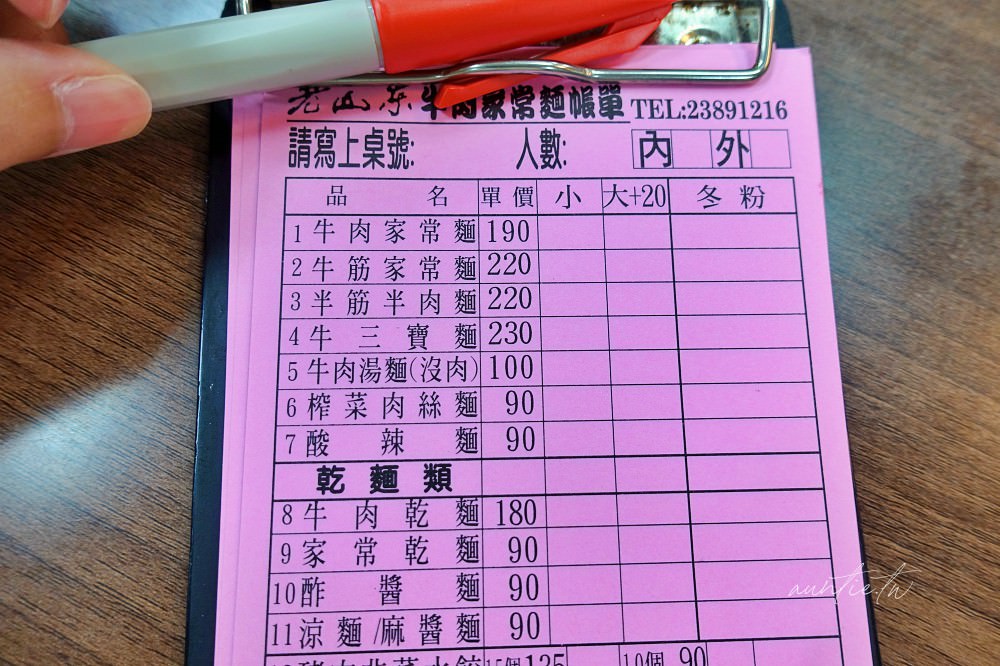 老山东牛肉家常麵帳單 TEL:23891216
請寫上桌號: 人數: 內 外
品名 單價 小 大+20 冬粉
1 牛肉家常麵 190
2 牛筋家常麵 220
3 半筋半肉麵 220
4 牛三寶麵 230
5 牛肉湯麵(沒肉) 100
6 榨菜肉絲麵 90
7 酸辣麵 90
乾麵類
8 牛肉乾麵 180
9 家常乾麵 90
10 酢醬麵 90
11 涼麵/麻醬麵 90
15個135 10個 90
auntie.tw